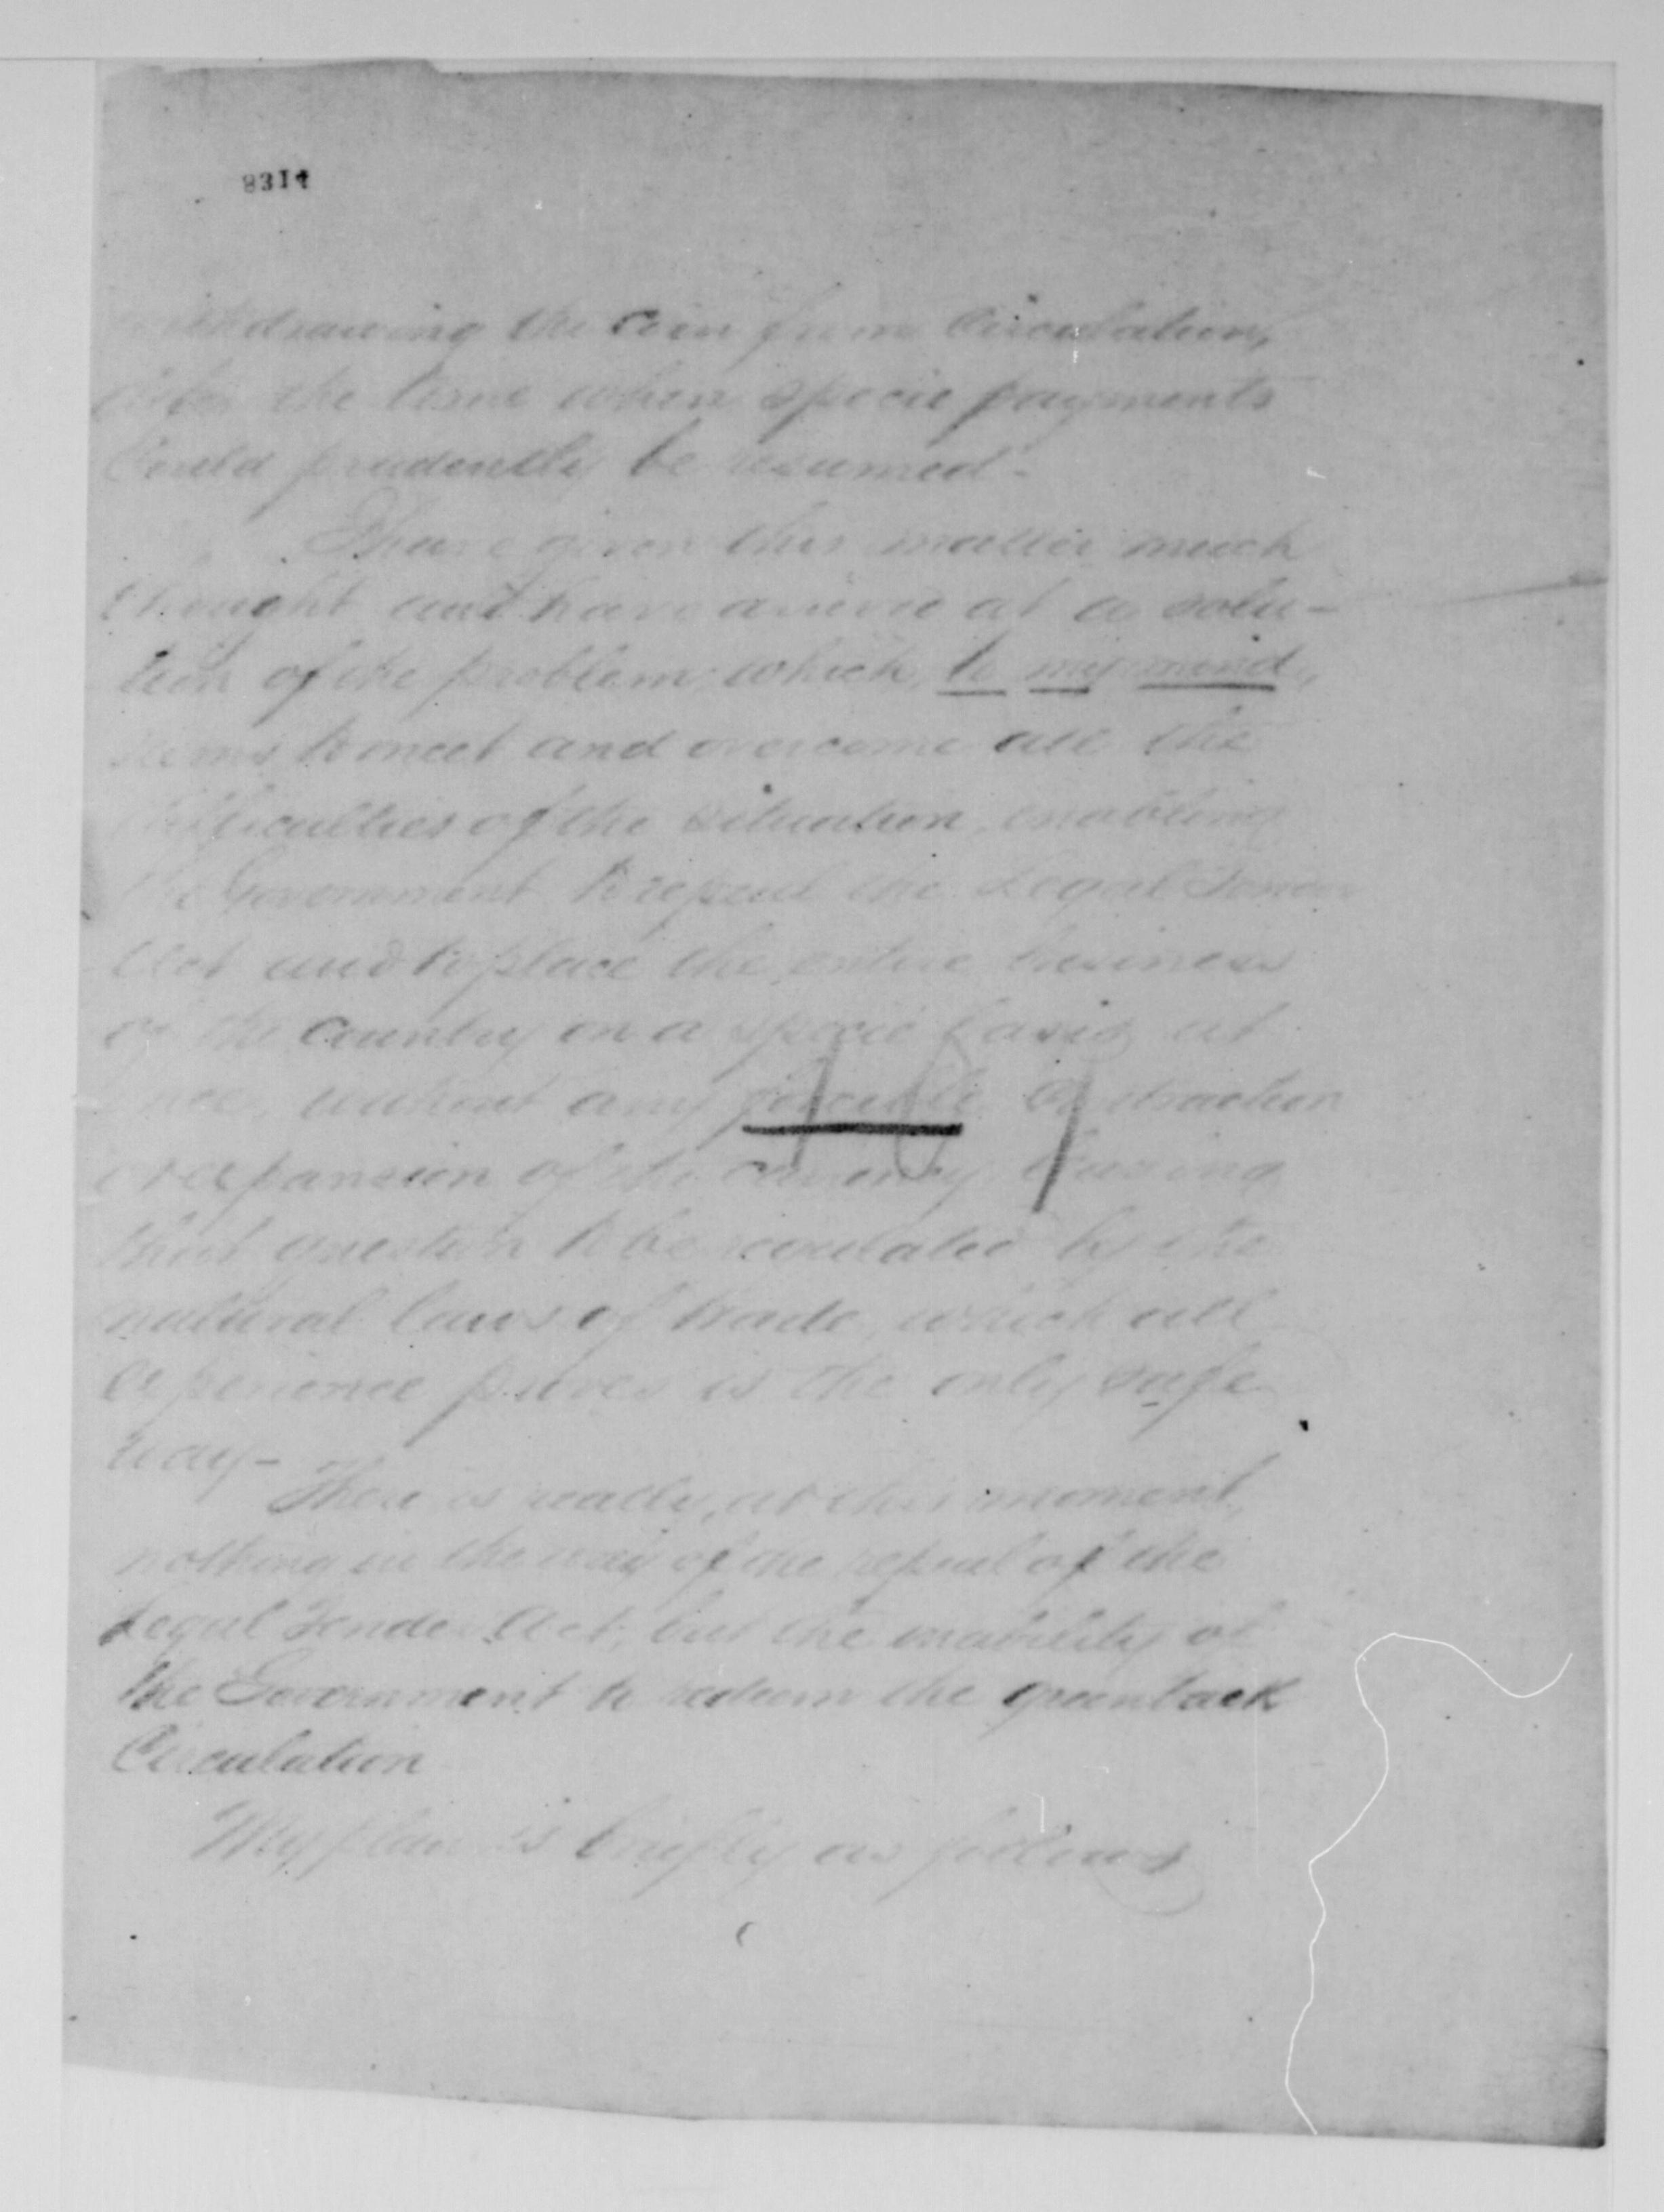 8314
withdrawing the coin from Circulation,
after the time when specie payments
Could prudently be resumed-
I have given this matter much
thought and have arrived at a solu-
tion of the problem, which, to my mind,
seems to meet and overcome all the
difficulties of the situation, enabling
the Government to repeal the Legal Tender
Act and to place the entire business
of the Country on a specie basis at
once, without any Contraction
or expansion of the currency leaving
that question to be regulated by the
natural laws of trade, which all
experience proves is the only safe
way-
There is really, at this moment,
nothing in the way of the repeal of the
Legal Tender Act, but the inability of
the Government to redeem the greenback
Circulation
My plan is briefly as follows